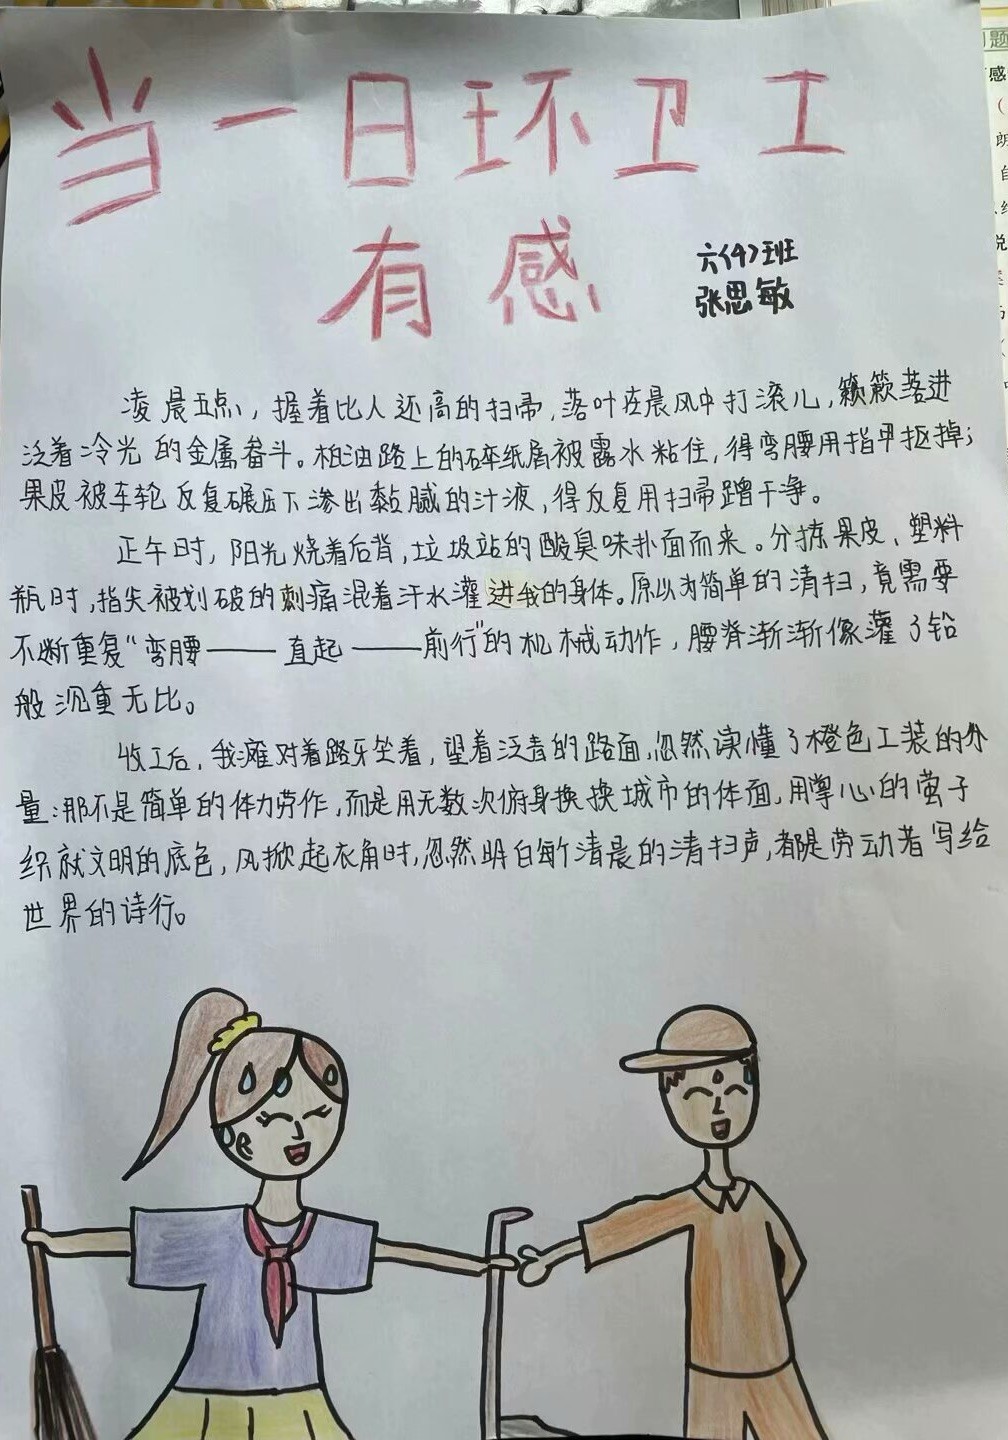 当一日环卫工
有感
六(4)班
张思敏
凌晨五点，握着比人还高的扫帚，落叶在晨风中打滚儿，簌簌落进
泛着冷光的金属畚斗。柏油路上的碎纸屑被露水粘住，得弯腰用指甲抠掉；
果皮被车轮反复碾压下渗出黏腻的汁液，得反复用扫帚蹭干净。
正午时，阳光烧着后背，垃圾站的酸臭味扑面而来。分拣果皮、塑料
瓶时，指尖被划破的刺痛混着汗水灌进我的身体。原以为简单的清扫，竟需要
不断重复“弯腰——直起——前行”的机械动作，腰脊渐渐像灌了铅
般沉重无比。
收工后，我瘫对着路牙坐着，望着泛青的路面，忽然读懂了橙色工装的分
量：那不是简单的体力劳作，而是用无数次俯身换换城市的体面，用掌心的茧子
织就文明的底色，风掀起衣角时，忽然明白每个清晨的清扫声，都是劳动者写给
世界的诗行。
题
感